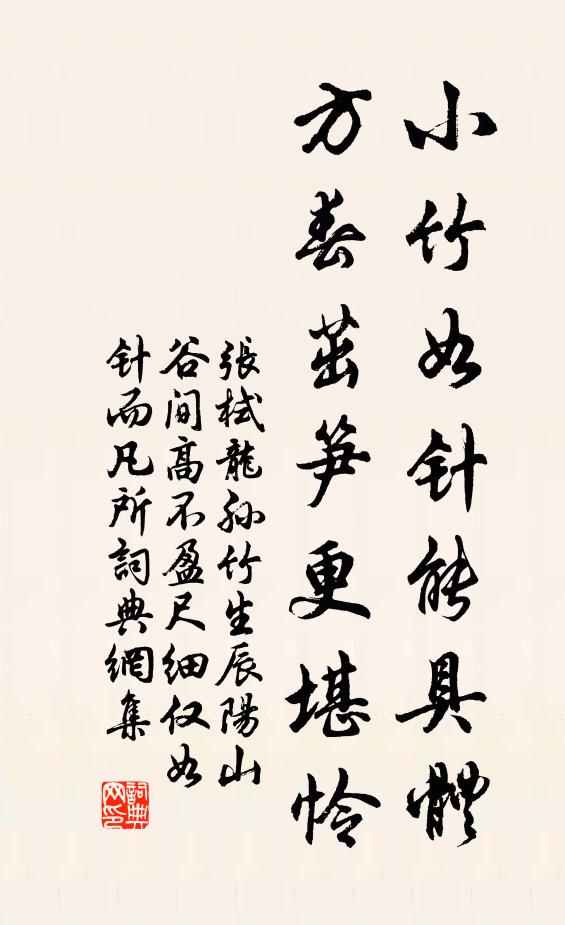 小竹如针能具體
方春茁笋更堪怜
張栻龍孙竹生辰陽山
谷间高不盈尺细仅如
针而凡所詞典網集
詞典
网印